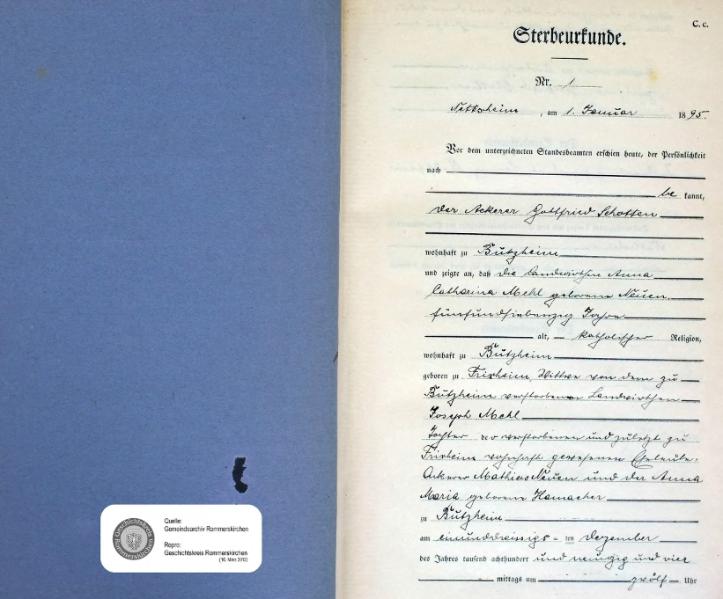 C. c.
Sterbeurkunde.
Nr. 1
Nettesheim, am 1. Januar 1895.
Vor dem unterzeichneten Standesbeamten erschien heute, der Persönlichkeit
nach
be kannt,
der Ackerer Gottfried Schotten
wohnhaft zu Butzheim
und zeigte an, daß die Landwirthin Anna
Catharina Mehl geborene Neuen
fünfundsiebenzig Jahre
alt, katholischer Religion,
wohnhaft zu Butzheim
geboren zu Frixheim, Wittwe von dem zu
Butzheim verstorbenen Landwirthen
Joseph Mehl
Tochter der verstorbenen und zuletzt zu
Frixheim wohnhaft gewesenen Eheleute
Ackerer Mathias Neuen und der Anna
Maria geborene Hamacher
zu Butzheim
am einunddreißigs-ten Dezember
des Jahres tausend achthundert und neunzig und vier
mittags um zwölf Uhr
Geschichtskreis
Rommerskirchen
Quelle:
Gemeindearchiv Rommerskirchen
Repro:
Geschichtskreis Rommerskirchen